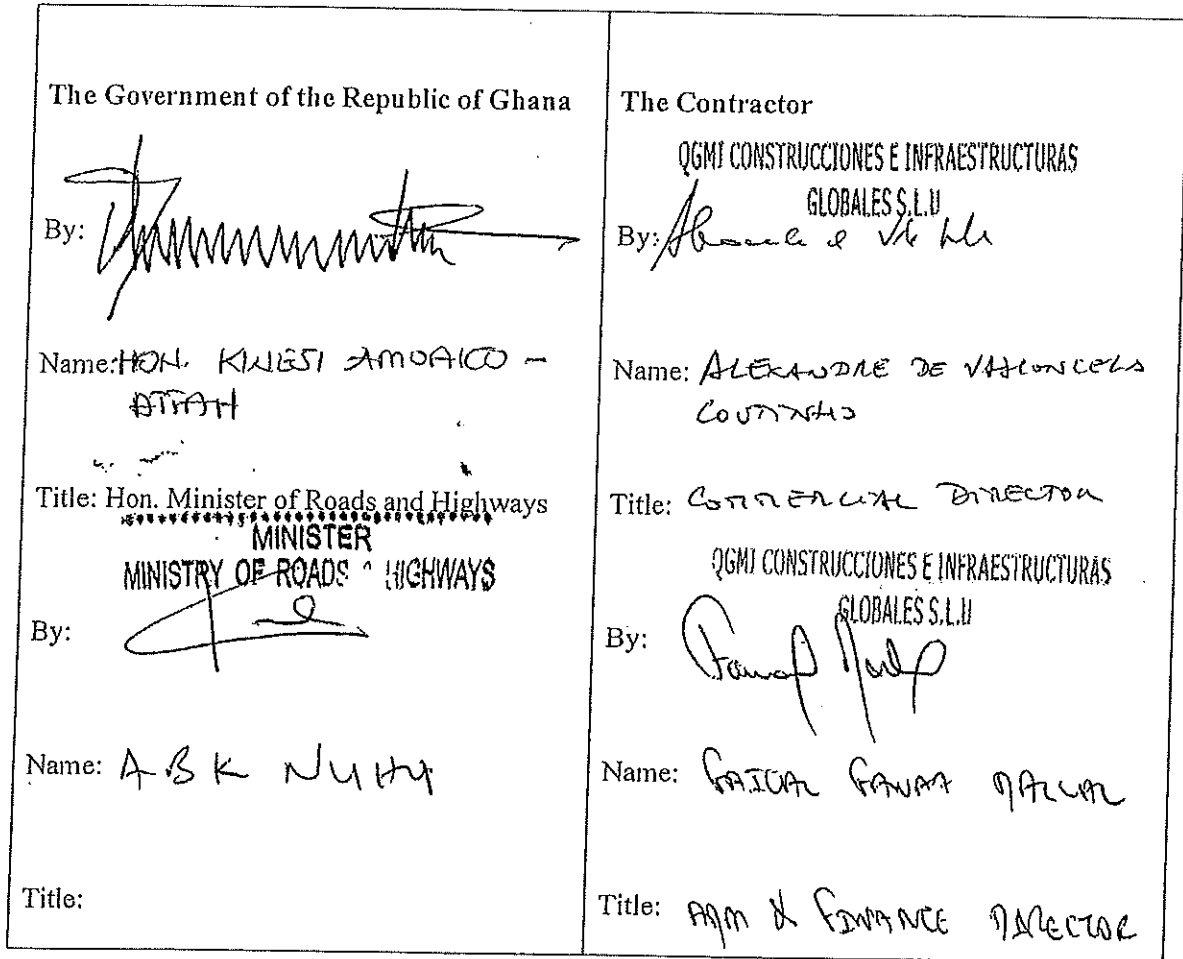 The Government of the Republic of Ghana
By:
Name: HON. KWESI AMOAKO -
ATTAH
Title: Hon. Minister of Roads and Highways
MINISTER
MINISTRY OF ROADS & HIGHWAYS
By:
Name: A B K NUHU
Title:
The Contractor
QGMI CONSTRUCCIONES E INFRAESTRUCTURAS
GLOBALES S.L.U
By:
Name: ALEXANDRE DE VASCONCELOS
COUTINHO
Title: COMMERCIAL DIRECTOR
QGMI CONSTRUCCIONES E INFRAESTRUCTURAS
GLOBALES S.L.U
By:
Name:
Title: ADM & FINANCE DIRECTOR